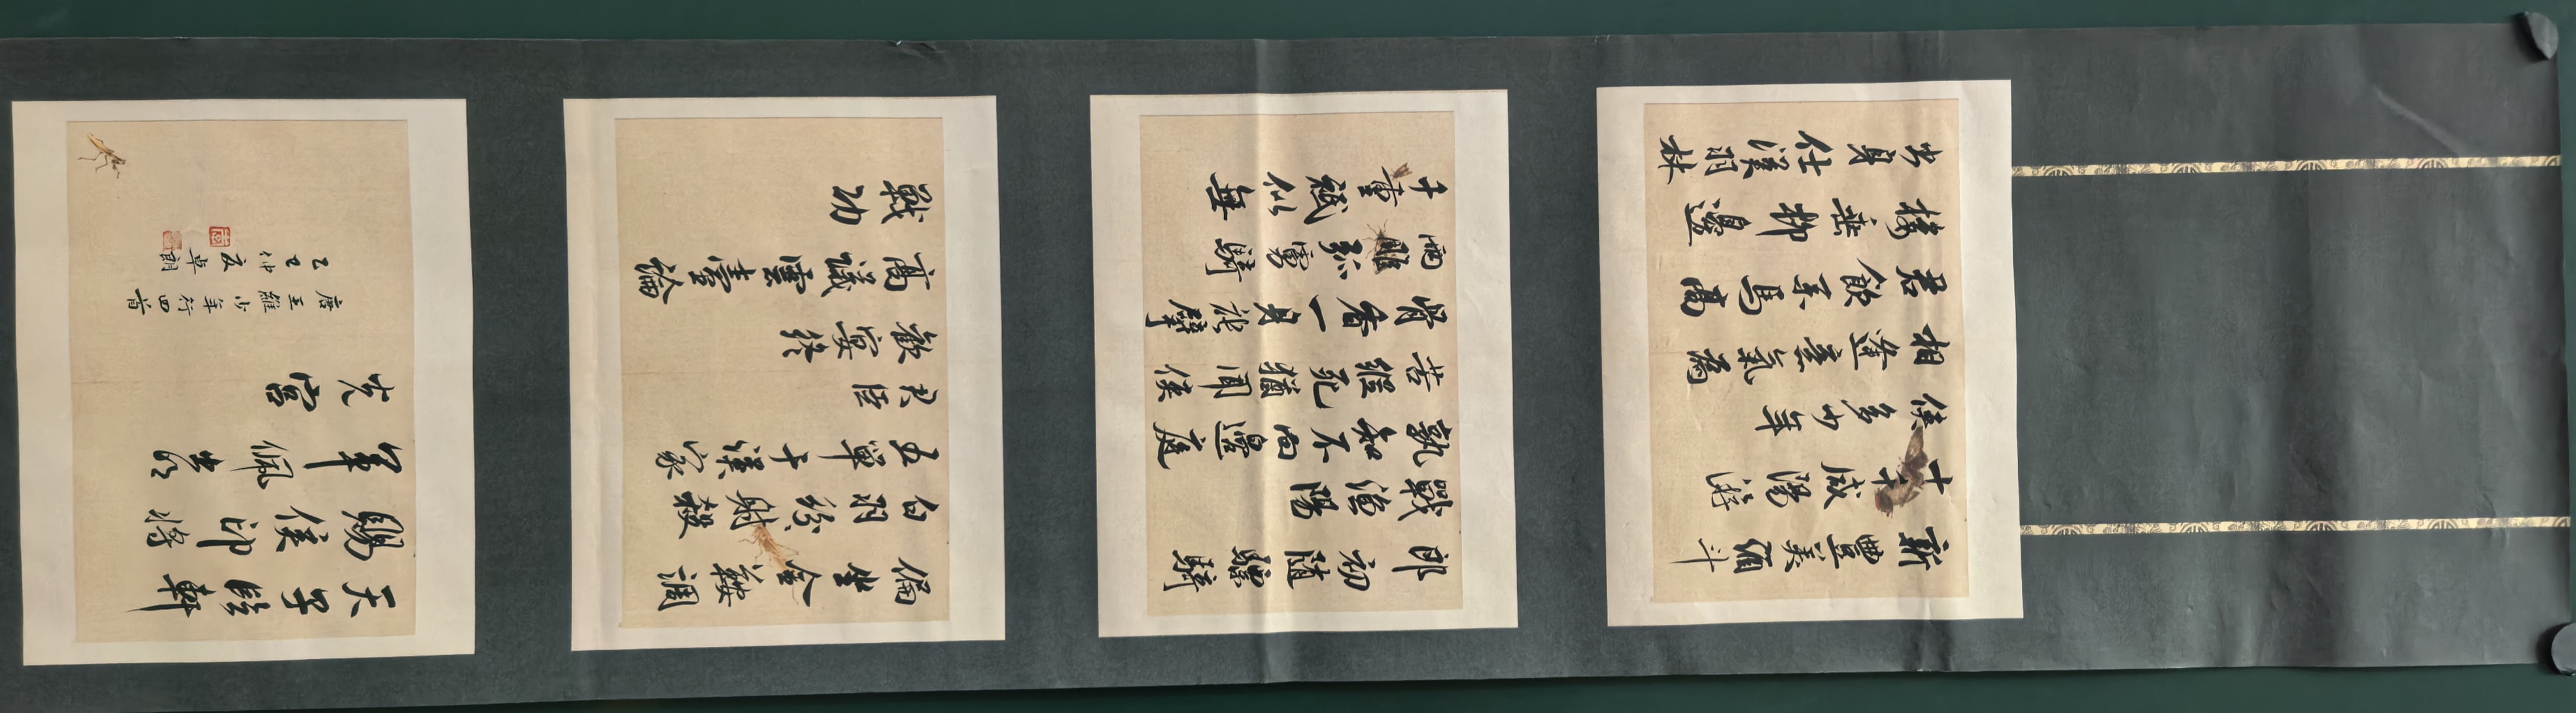 新豐美酒斗
十千咸陽游
俠多少年
相逢意氣為
君飲系馬高
樓垂柳邊
出身仕漢羽林
郎初隨驃騎
戰漁陽
孰知不向邊庭
苦縱死猶聞俠
骨香一身能擘
兩雕弧虜騎
千重祇似無
偏坐金鞍調
白羽紛〻射殺
五單于漢家
君臣
歡宴終
高議雲臺論
戰功
天子臨軒
賜侯印將
軍佩出明
光宮
唐王維少年行四首
乙丑仲夏卓朗